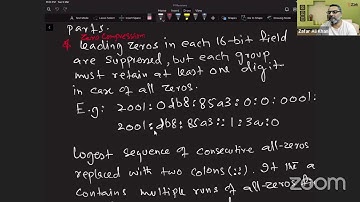 parts.
Zero Compression
* Leading zeros in each 16-bit field
are suppressed, but each group
must retain at least one digit
in case of all zeros.
E.g: 2001:0db8:85a3:0:0:0001:
2001:db8:85a3::1:3a:0
Logest sequence of consecutive all-zeros
replaced with two colons (::). If the a
contains multiple runs of all-zeros
Zafar Ali Khan
zoom